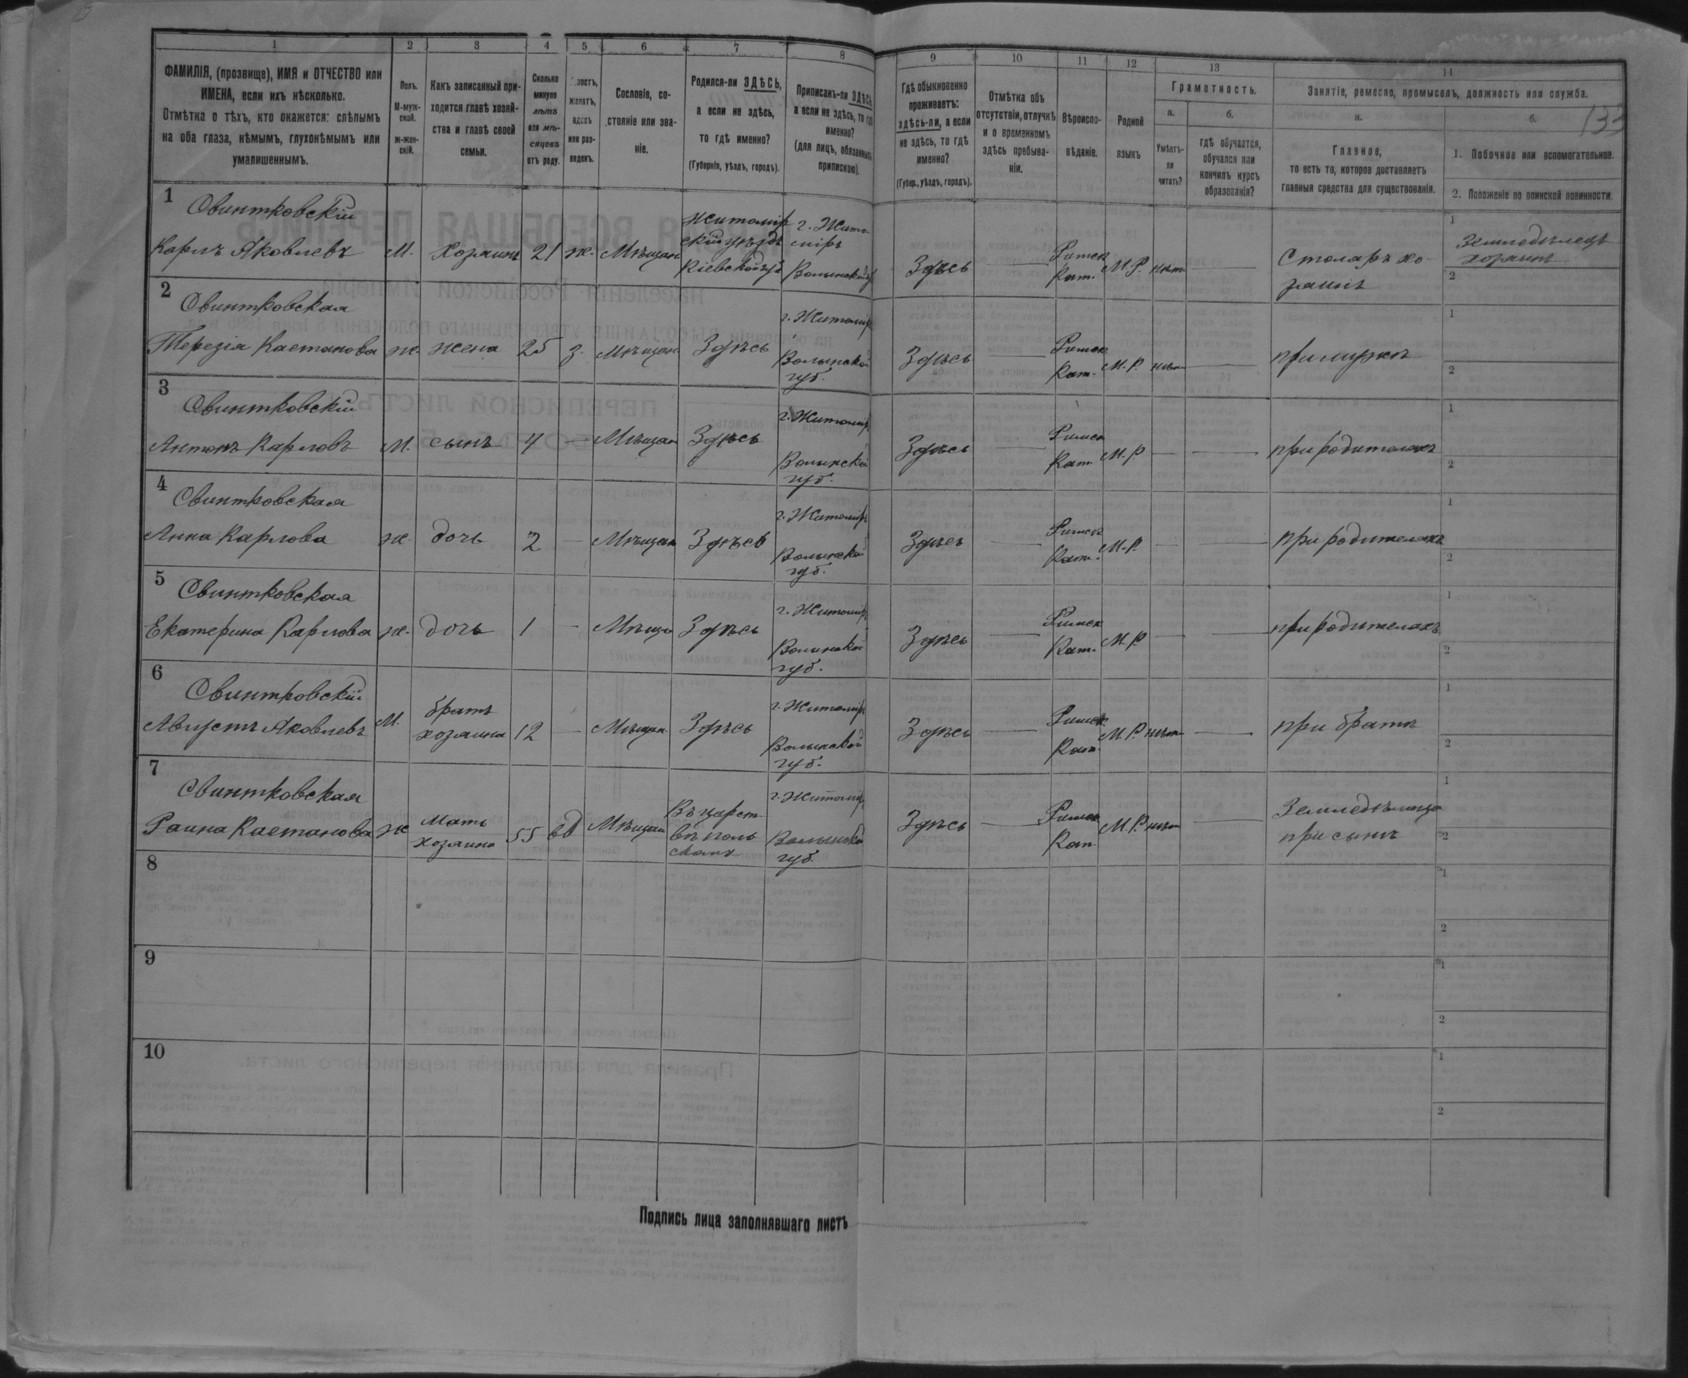 133
1 2 3 4 5 6 7 8 9 10 11 12 13 14
ФАМИЛІЯ, (прозвище), ИМЯ и ОТЧЕСТВО или ИМЕНА, если ихъ нѣсколько.
Отмѣтка о тѣхъ, кто окажется: слѣпымъ на оба глаза, нѣмымъ, глухонѣмымъ или умалишеннымъ.
Полъ.
М-мужской.
ж-женскій.
Какъ записанный приходится главѣ хозяйства и главѣ своей семьи.
Сколько минуло лѣтъ или мѣсяцевъ отъ роду.
женатъ, вдовъ или разведенъ.
Сословіе, состояніе или званіе.
Родился-ли ЗДѢСЬ, а если не здѣсь, то гдѣ именно?
(Губернія, уѣздъ, городъ).
Приписанъ-ли ЗДѢСЬ, а если не здѣсь, то гдѣ именно?
(для лицъ, обязанныхъ припискою).
Гдѣ обыкновенно проживаетъ: здѣсь-ли, а если не здѣсь, то гдѣ именно?
(Губер., уѣздъ, городъ).
Отмѣтка объ отсутствіи, отлучкѣ и о временномъ здѣсь пребываніи.
Вѣроисповѣданіе.
Родной языкъ
Грамотность.
а.
Умѣетъ-ли читать?
б.
гдѣ обучается, обучался или кончилъ курсъ образованія?
Занятіе, ремесло, промыселъ, должность или служба.
а.
Главное,
то есть то, которое доставляетъ главныя средства для существованія.
б.
1. Побочное или вспомогательное.
2. Положеніе по воинской повинности.
1 Свинтковскій Карлъ Яковлевъ М. Хозяинъ 21 ж. Мѣщан Житомирскій уѣздъ Кіевской губ г. Житомиръ Волынской г Здѣсь Римск Кат. М.Р. нѣт Столяръ хозяинъ 1 Земледѣлецъ хозяинъ 2
2 Свинтковская Терезія Каетанова ж. жена 25 з. Мѣщан Здѣсь г. Житомир Волынской губ. Здѣсь Римск Кат. М.Р. нѣт при мужѣ 1 2
3 Свинтковскій Антонъ Карловъ М. сынъ 4 Мѣщан Здѣсь г. Житомир Волынской губ. Здѣсь Римск Кат М.Р при родителяхъ 1 2
4 Свинтковская Анна Карлова ж. дочь 2 Мѣщан Здѣсь г. Житомир Волынской губ. Здѣсь Римск Кат. М.Р. при родителяхъ 1 2
5 Свинтковская Екатерина Карлова ж. дочь 1 Мѣщан Здѣсь г. Житомир Волынской губ. Здѣсь Римск Кат. М.Р при родителяхъ 1 2
6 Свинтковскій Августъ Яковлевъ М. братъ хозяина 12 Мѣщан Здѣсь г. Житомир Волынской губ. Здѣсь Римск Кат М.Р. нѣт при братѣ 1 2
7 Свинтковская Каетанова ж мать хозяина 55 вд Мѣщан Въ царствѣ польском г. Житомир Волынской губ. Здѣсь Римск Кат М.Р. нѣт Земледѣлица при сынѣ 1 2
8 1 2
9 1 2
10 1 2
Подпись лица заполнявшаго листъ